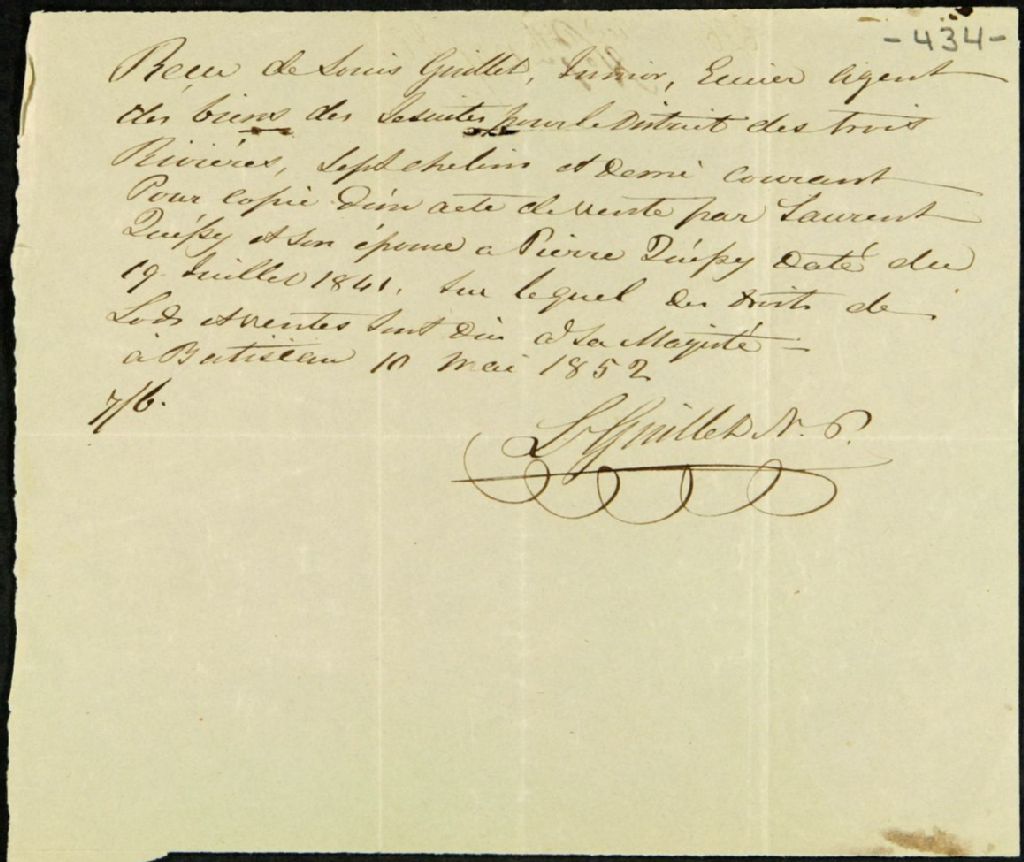 - 434 -
Réçu de Louis Guillet, Junior, Ecuier Agent
des biens des Jesuites pour le District des trois
Rivières, Sept chelins et demi courant
Pour copie d'un acte de vente par Laurent
Quéssy et son épouse a Pierre Quéssy daté du
19 Juillet 1841, sur lequel des droits de
Lods et ventes sont dus à Sa Majesté -
à Batiscan 10 Mai 1852
7/6.
Ls Guillet N. P.